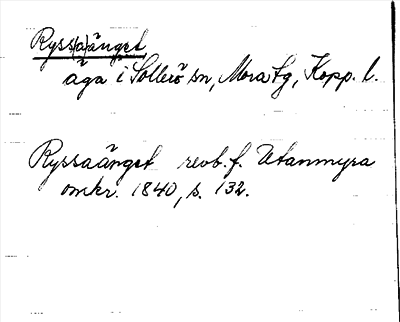 Ryss(a)änget
äga i Sollerö sn, Mora tg, Kopp. l.
Ryssaänget revb. f. Utanmyra
omkr. 1840, s. 132.